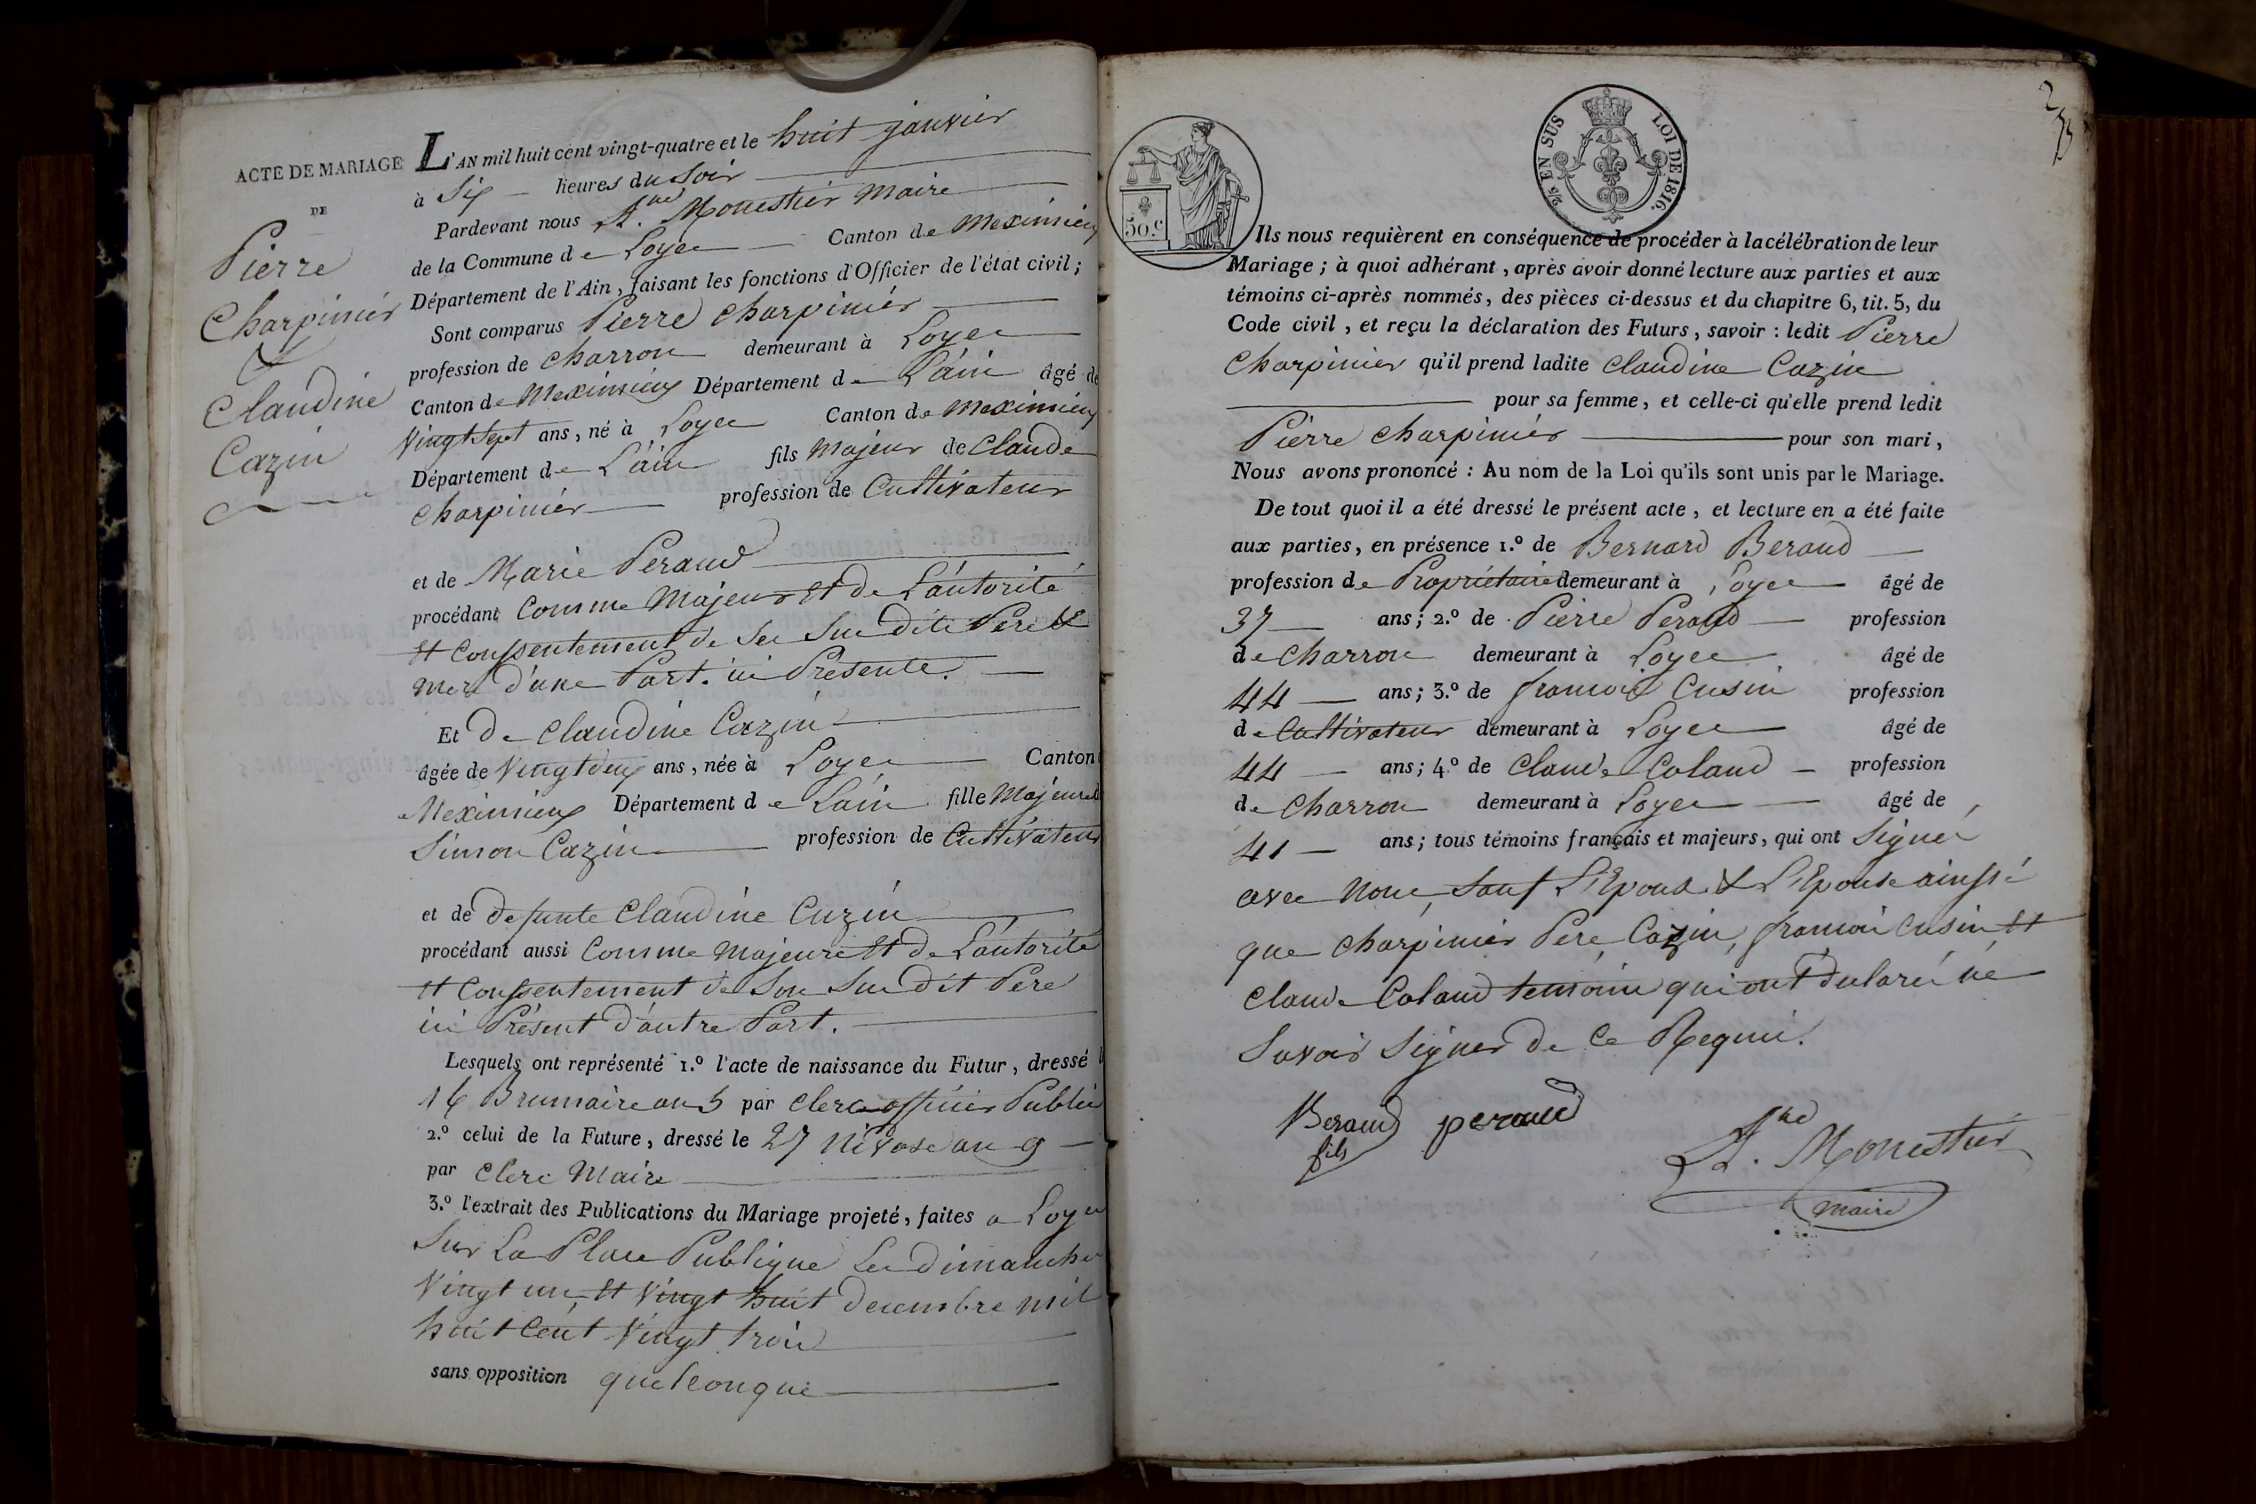 ACTE DE MARIAGE
DE
Pierre
Charpinier
&
Claudine
Cazin
L'AN mil huit cent vingt-quatre et le huit janvier
à Six heures du Soir
Pardevant nous A.né Monestier Maire
de la Commune de Loyes Canton de Meximieux
Département de l'Ain, faisant les fonctions d'Officier de l'état civil;
Sont comparus Pierre Charpinier
profession de Charron demeurant à Loyes
Canton de Meximieux Département de L'ain âgé de
Vingt Sept ans, né à Loyes Canton de Meximieux
Département de L'ain fils Majeur de Claude
Charpinier profession de Cultivateur
et de Marie Peraud
procédant Comme Majeur et de L'autorité
et Conssentement de Ses Sus dits Pere &
Mere d'une Part. ici Presents.
Et De Claudine Cazin
âgée de Vingt deux ans, née à Loyes Canton
Meximieux Département de Lain fille Majeure de
Simon Cazin profession de Cultivateur
et de defunte Claudine Cuzin
procédant aussi Comme Majeure et de L'autorité
et Conssentement de Son Sus dit Pere
ici Présent d'autre Part.
Lesquels ont représenté 1.º l'acte de naissance du Futur, dressé
16 Brumaire an 5 par Clerc officier Public
2.º celui de la Future, dressé le 27 Nivose an 9
par Clerc Maire
3.º l'extrait des Publications du Mariage projeté, faites a Loyes
Sur La Place Publique Les Dimanches
Vingt un, et Vingt huit Decembre mil
huit Cent Vingt trois
sans opposition quelconque
2
50.c
2/5 EN SUS LOI DE 1816.
Ils nous requièrent en conséquence de procéder à la célébration de leur
Mariage; à quoi adhérant, après avoir donné lecture aux parties et aux
témoins ci-après nommés, des pièces ci-dessus et du chapitre 6, tit. 5, du
Code civil, et reçu la déclaration des Futurs, savoir: ledit Pierre
Charpinier qu'il prend ladite Claudine Cazin
pour sa femme, et celle-ci qu'elle prend ledit
Pierre Charpinier pour son mari,
Nous avons prononcé: Au nom de la Loi qu'ils sont unis par le Mariage.
De tout quoi il a été dressé le présent acte, et lecture en a été faite
aux parties, en présence 1.º de Bernard Beraud
profession de Propriétaire demeurant à Loyes âgé de
37 ans; 2.º de Pierre Peraud profession
de Charron demeurant à Loyes âgé de
44 ans; 3.º de francois Cusin profession
de Cultivateur demeurant à Loyes âgé de
44 ans; 4.º de Claude Coland profession
de Charron demeurant à Loyes âgé de
41 ans; tous témoins français et majeurs, qui ont Signé
avec Nous, Sauf L'Epoux & L'Epouse ainssi
que Charpinier Pere, Cazin, francois Cusin et
Claude Coland temoins qui ont déclarés ne
Savoir Signer de Ce Requis.
Beraud peraud
fils
A.né Monestier
Maire